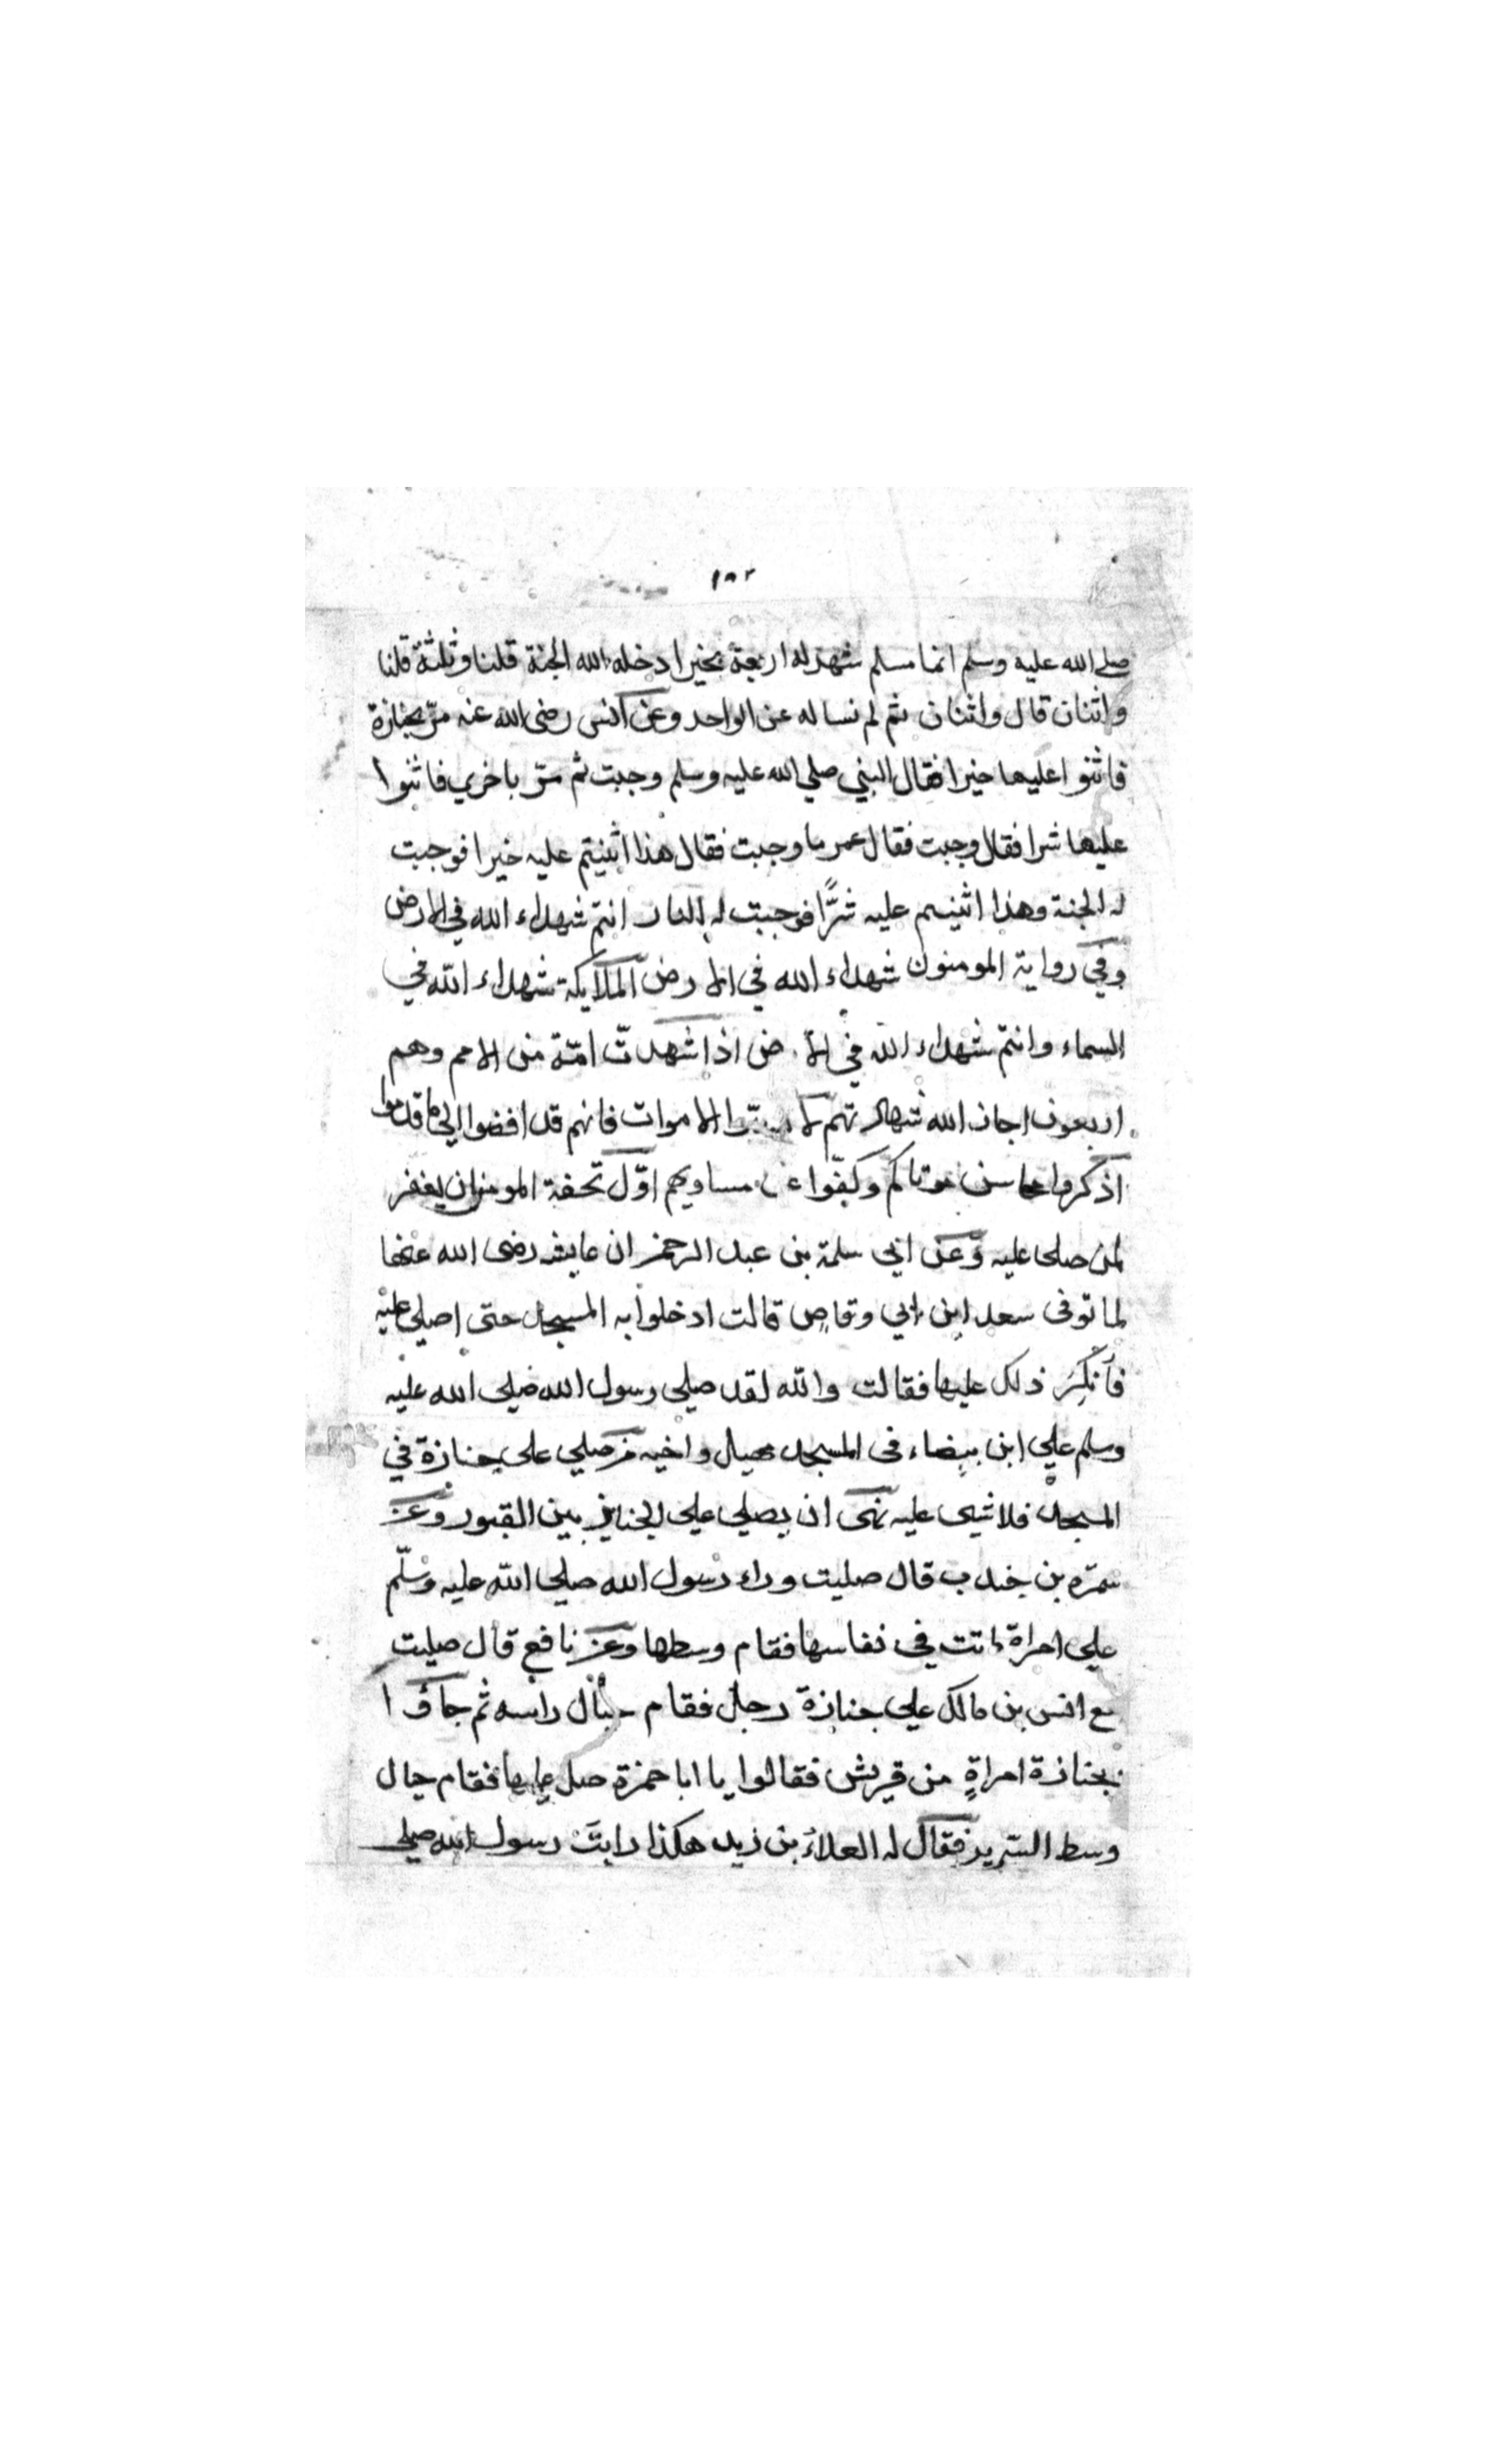 ١٨٢
صلي الله عليه وسلم انما مسلم شهد له اربعة بخير ادخله الله الجنة قلنا وثلثة قلنا
واثنان قال واثنان ثم لم نساله عن الواحد وعن انس رضى الله عنه مرّ بجنازة
فاثنوا عليها خيرا فقال النبي صلي الله عليه وسلم وجبت ثم مرّ باخري فاثنوا
عليها شرا فقال وجبت فقال عمر ما وجبت فقال هذا اثنيتم عليه خيرا فوجبت
له الجنة وهذا اثنيتم عليه شرًّا فوجبت له النار انتم شهداء الله في الارض
وفي رواية المومنون شهداء الله في الارض الملايكة شهداء الله في
السماء وانتم شهداء الله في الارض اذا شهدتّ امّة من الامم وهم
اربعون اجاز الله شهادتهم لا تسبّوا الاموات فانهم قد افضوا الي ما قدموا
اذكروا محاسن موتاكم وكفّوا عن مساويهم اوّل تحفة المومن ان يغفر
لمن صلى عليه وعن ابي سلمة بن عبد الرحمن ان عايشه رضى الله عنها
لما توفى سعد ابن ابي وقاص قالت ادخلوا به المسجد حتى اصلي عليه
فأنكِرَ ذلك عليها فقالت والله لقد صلى رسول الله صلى الله عليه
وسلم علي ابن بيضاء فى المسجد سهيل واخيه من صلي على جنازة في
المسجد فلا شيى عليه نهى ان يصلي علي الجنايز بين القبور وعن
سمرّه بن جندب قال صليت وراء رسول الله صلى الله عليه وسلّم
علي امراة ماتت في نفاسها فقام وسطها وعن نافع قال صليت
مع انس بن مالك علي جنازة رجل فقام حيال راسه ثم جاؤا
بجنازة امراةٍ من قريش فقالوا يا ابا حمزة صل عليها فقام حيال
وسط السّرير فقال له العلاءُ بن زيد هكذا رايتَ رسول الله صلي